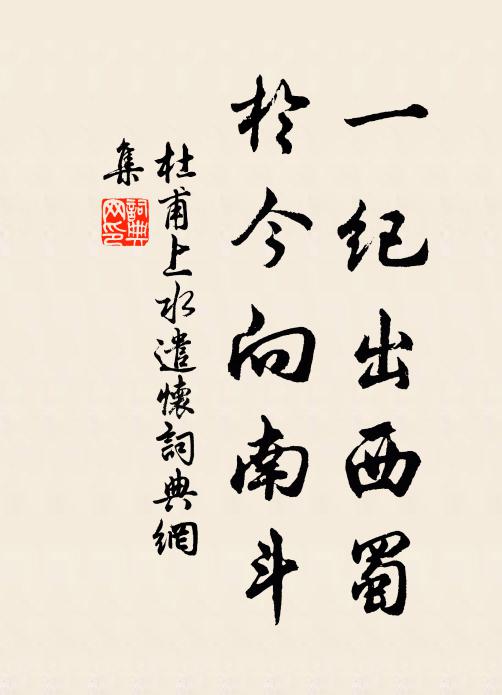 一纪出西蜀
於今向南斗
杜甫上水遣懷詞典網
集
詞典
网印